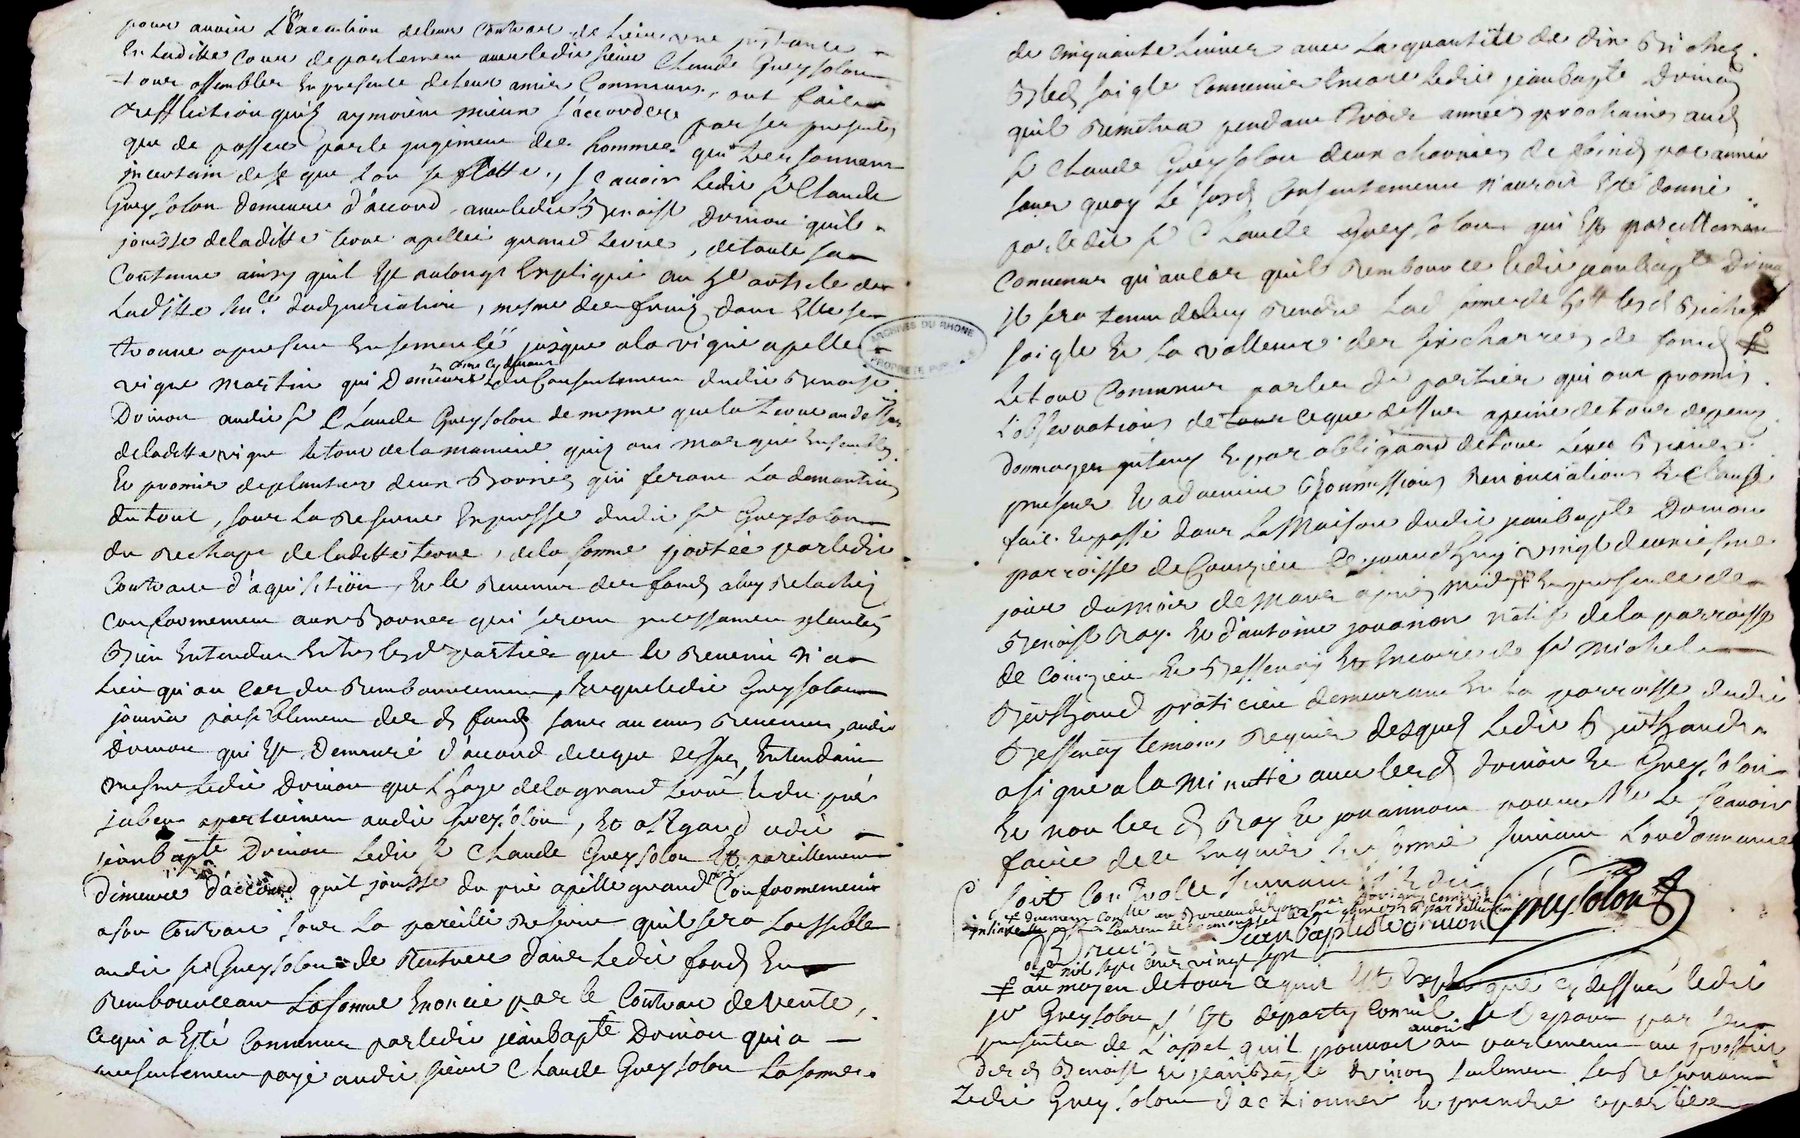 pour avoir l'execution de leur contrat de leur une instance
en laditte cour de parlement avec ledit sieur Claude Greysolon
tous assemblés en presence de leurs amis communs, ont fait
refflection quils aymoient mieux s'accorder par ses presentes
que de passer par le jugement des hommes qui
incertain de ce que l'on se flatte, sçavoir ledit sr Claude
Greysolon demeure d'accord avec ledit Benoist Drivon quil
jouisse de laditte terre apellée grand terre, de toute sa
contenue ainsy quil est au long expliqué au article de
laditte sen.ce d'adjudication, mesme des fruits dont elle se
trouve apresent ensemencée jusque a la vigne apellée
vigne Martin qui demeure du consentement dudit Benoist
Drivon audit sr Claude Greysolon de mesme que la terre au dessus
de laditte vigne le tout de la maniere quils ont marqué ensemble
et promis de planter deux bornes qui feront la
du tout, sous la reserve expresse dudit sr Greysolon
du rechapt de laditte terre, de la somme portée par ledit
contrat d'aquisition, et le revenu des fonds a luy relachés
conformement aux bornes qui seront incessament plantés
bien entendu entre lesd parties que le revenu n'a
lieu qu'au cas du remboursement, et que ledit Greysolon
jouira paisiblement des d fonds sans aucun revenu, audit
Drivon qui est demeuré d'accord de ce que dessus, entendant
mesme ledit Drivon que l'haye de la grand terre
apartienne audit Greysolon, et a l'egard dudit
jean bapte Drivon ledit sr Claude Greysolon est pareillement
demeuré d'accord quil jouisse du pré apellé grand conformement
a son contrat sous la pareille reserve quil sera loissible
audit sr Greysolon de rentrer dans ledit fond en
remboursant la somme enoncée par le contrat de vente,
ce qui a esté convenu par ledit jean bapte Drivon qui a
presentement payé audit sieur Claude Greysolon la somme
de cinquante livres avec la quantité de dix bichets
bled soigle convenu encore ledit jean bapte Drivon
quil remettra pendant trois années prochaines aud
sr Claude Greysolon deux charrées de foin par année
sans quoy le susd consentement n'auroit esté donné
par ledit sr Claude Greysolon qui est pareillement
convenu qu'au cas quil rembource ledit jean bapte Drivon
il sera tenu de luy rendre lad somme de 50 tt les d bichets
soigle et la valleur des six charrées de foin
le tout convenu par les d parties qui ont promis
l'observations de tout ce que dessus a peine de tous depens
dommages interets et par obligations de tous leurs biens
presens et advenir soumissions renonciations et clauses
fait et passé dans la maison dudit jean bapte Drivon
parroisse de Courzieu ce jourd'huy vingt deuxiesme
jour du mois de mars apres midy en presence de
Benoist Ray et d'antoine jouanon natif de la parroisse
de Courzieu et Bessenay et encore de sr Michel
Berthaud praticien demeurant en la parroisse dudit
Bessenay temoins requis desquels ledit Berthaud
a signé a la minutte avec les d Drivon et Greysolon
et non les d Ray et jouannon pour ne le sçavoir
faire de ce enquis et sommé suivant l'ordonnance
soit controllé suivant l'edit
Greysolon
Jean baptiste drivon
mil sept cens vingt sept
au moyen de tout ce quil est expliqué cy dessus ledit
sr Greysolon s'est departy comme il se depart par ses
presentes de l'appel quil pouvoit avoir au parlement au proffit
des d Benoist et jean bapte Drivon seulement se reservant
ledit Greysolon d'actionner et prendre a partie
ARCHIVES DU RHONE
PROPRIETE PUBLIQUE